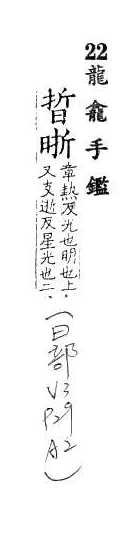 22 龍龕手鑑
晢晣
章熱反光也明也上
又支逝反星光也二
(日部
V3
P29
A2)